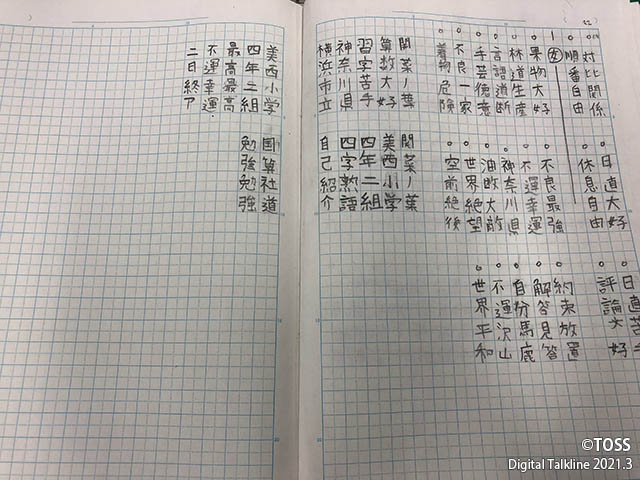 。対比関係 。日直大好 。日直苦手
。順番自由 。休息自由 。評論大好
。果物大好 。不良最強 。約束放置
。林道生産 。不運幸運 。解答見答
。言語道断 。神奈川県 。自分馬鹿
。手芸徳意 。油断大敵 。不運沢山
。不良一家 。世界絶望 。世界平和
。着物危険 。空前絶後
関菜ノ葉 関菜ノ葉
算数大好 美西小学
習字苦手 四年二組
神奈川県 四字熟語
横浜市立 自己紹介
美西小学 国算社道
四年二組 勉強勉強
最高最高
不運幸運
二日終了
©TOSS
Digital Talkline 2021.3